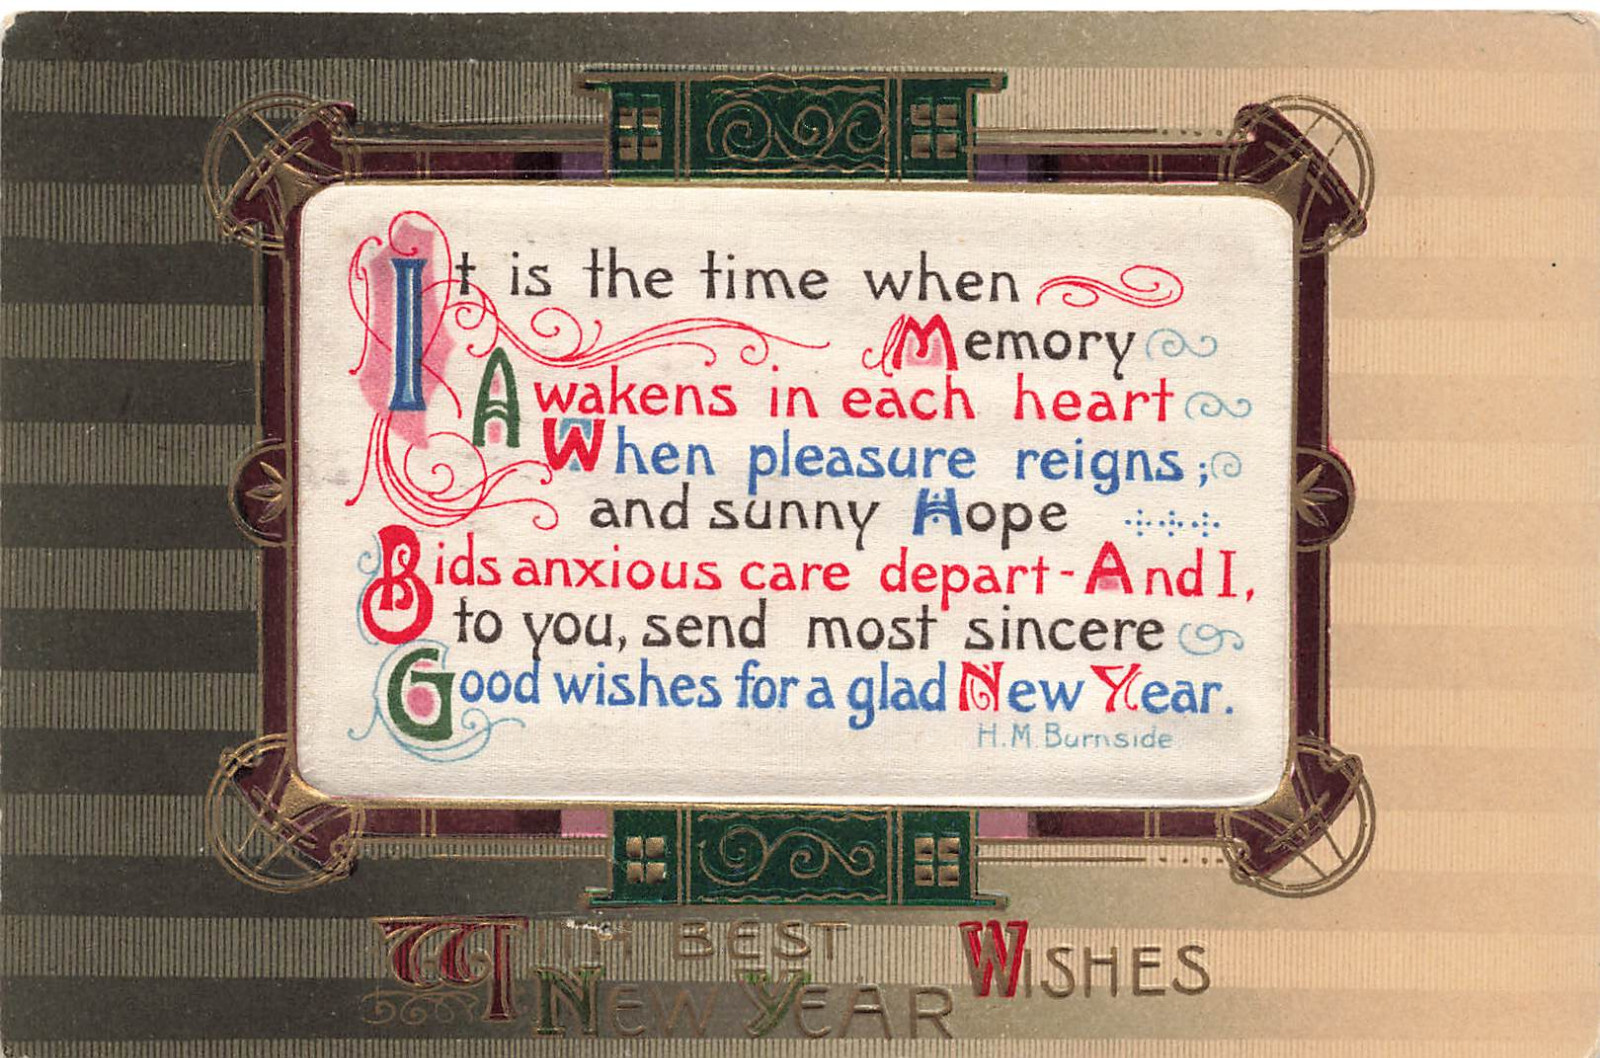 It is the time when
Memory
Awakens in each heart
When pleasure reigns;
and sunny Hope
Bids anxious care depart - And I,
to you, send most sincere
Good wishes for a glad New Year.
H. M. Burnside
With Best Wishes
New Year